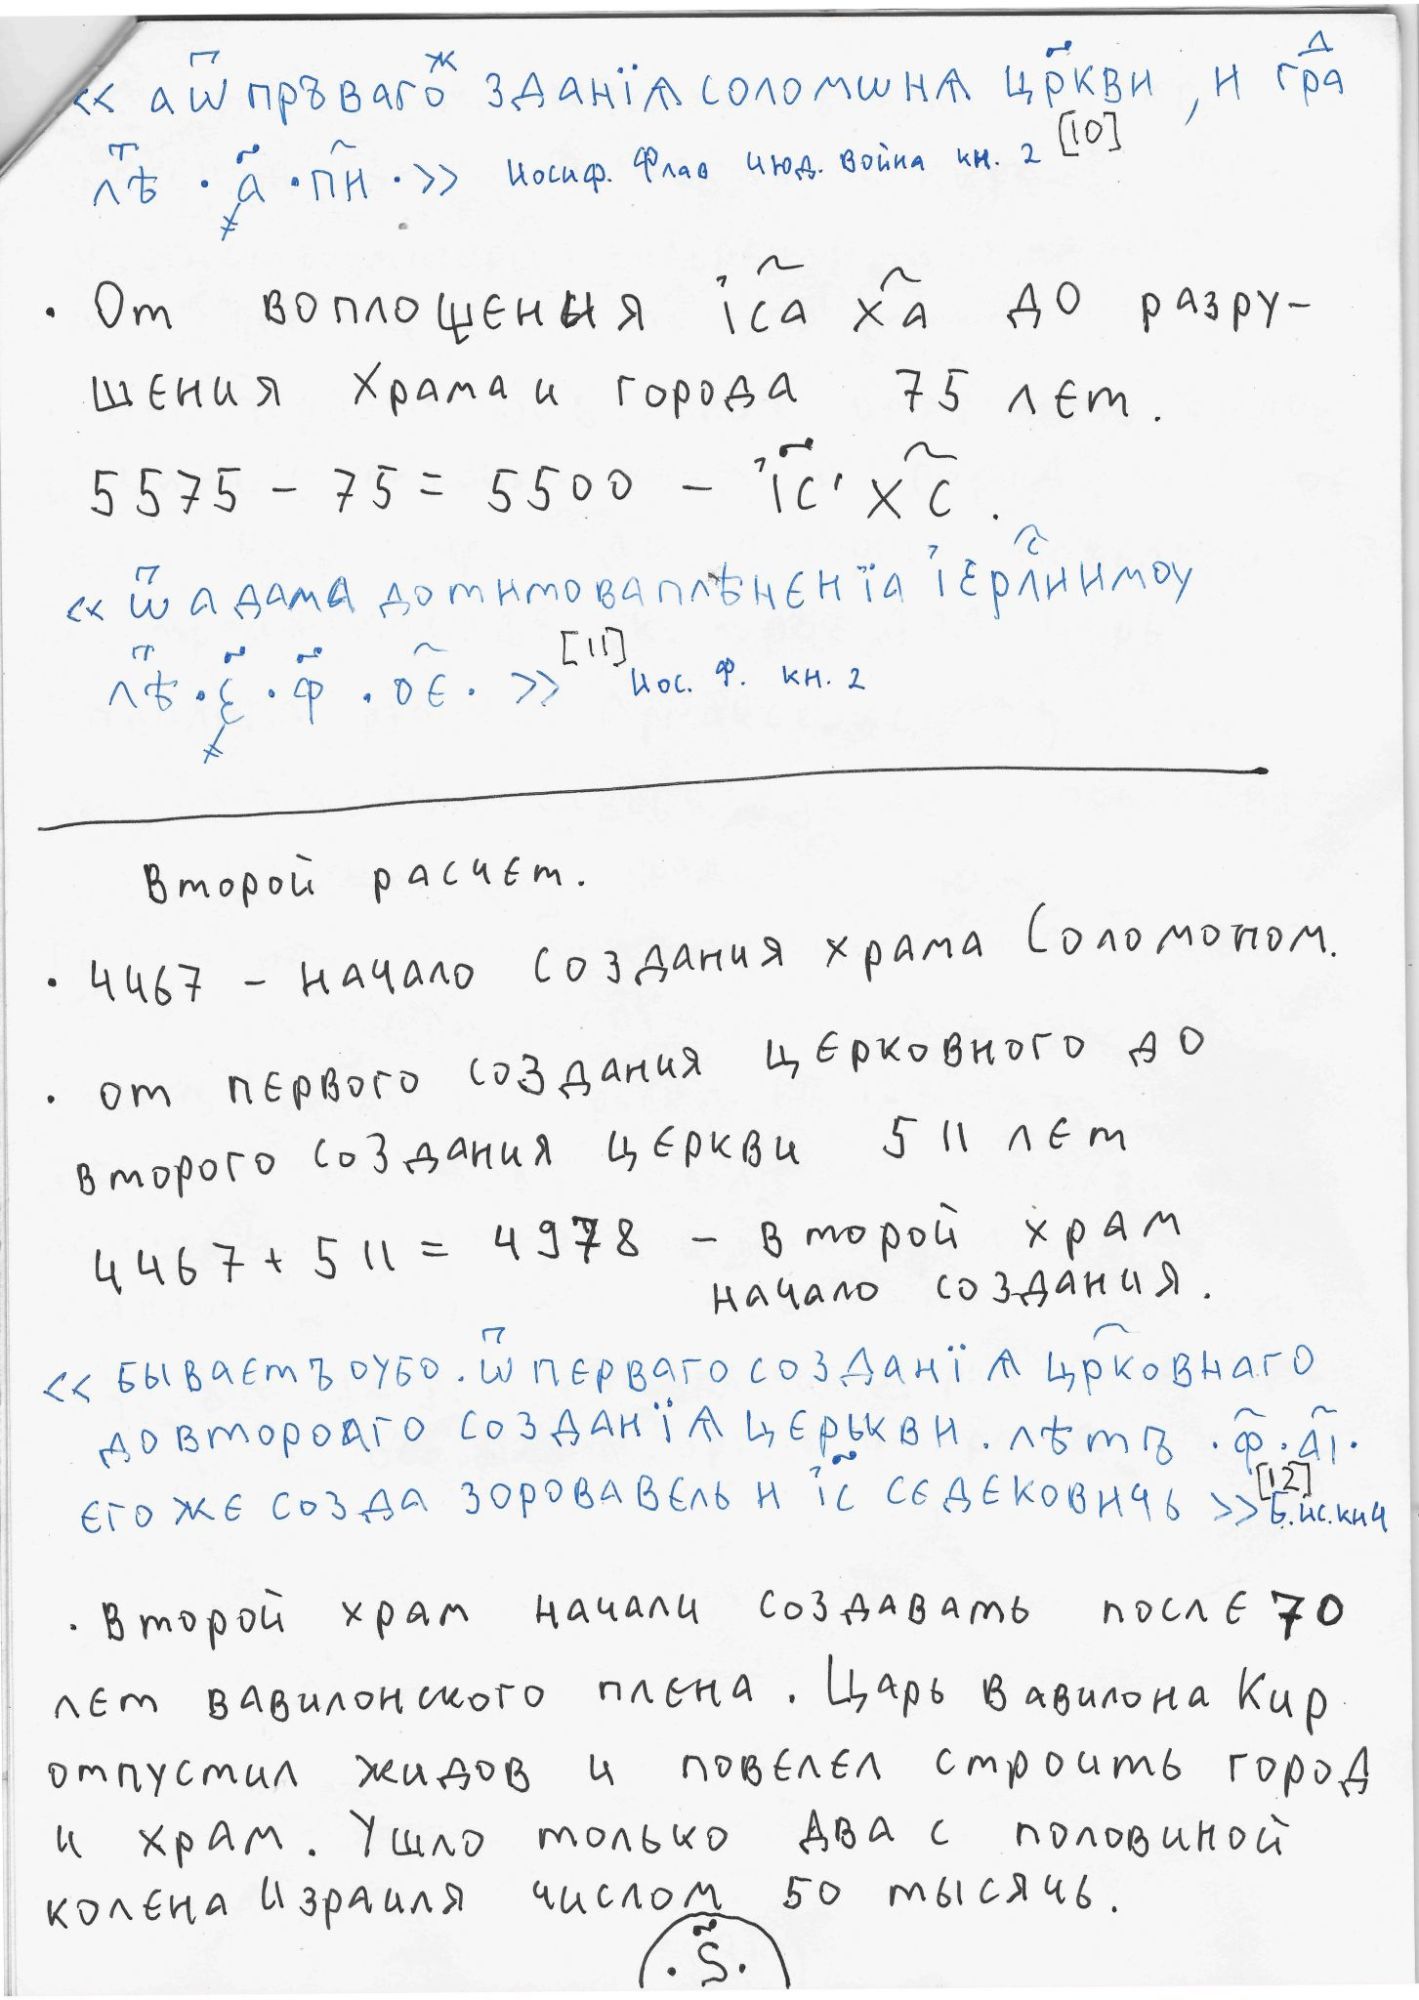 << а ѿ пръваго ж зданїѧ соломѡнѧ цр҃кви, и гра д
лѣ т · ҂а҃ · пи҃ · >> Иосиф. Флав июд. война кн. 2 [10]
· От воплощения і҆са҃ ха҃ до разру-
шения храма и города 75 лет.
5575 - 75 = 5500 - і҆с҃' хс҃.
<< ѿ адама до титова плѣненїа і҆ерли с имоу
лѣ т · ҂є҃ · ф҃ · оє҃ · >> [11] Иос. Ф. кн. 2
Второй расчет.
· 4467 - начало создания храма Соломоном.
· от первого создания церковного до
второго создания церкви 511 лет
4467 + 511 = 4978 - второй храм
начало создания.
<< бываетъ оубо. ѿ перваго созданїѧ цр҃ковнаго
до второаго созданїѧ церькви. лѣтъ · ф҃ · а҃і ·
егоже созда зоровавель и і҆с҃ седековичь >> [12] Б.ис.кн ч
· Второй храм начали создавать после 70
лет вавилонского плена. Царь Вавилона Кир
отпустил жидов и повелел строить город
и храм. Ушло только два с половиной
колена Израиля числом 50 тысячь.
· ѕ҃ ·